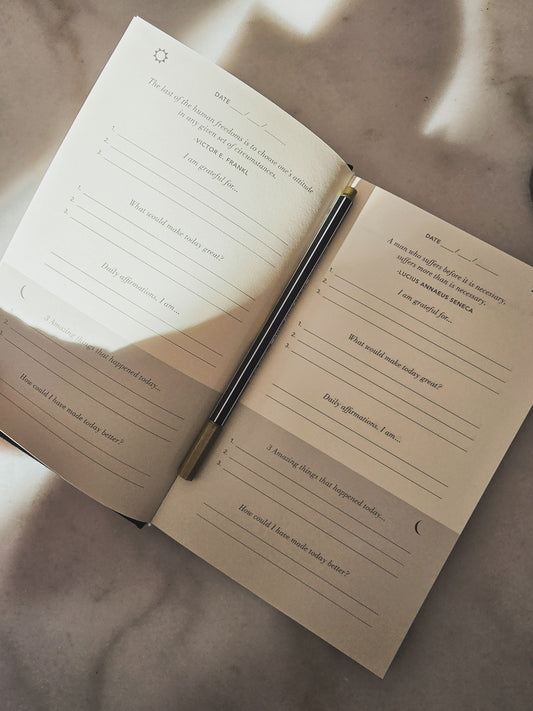 DATE __/__/__
The last of the human freedoms is to choose one's attitude
in any given set of circumstances.
-VICTOR E. FRANKL
I am grateful for...
1.
2.
3.
What would make today great?
1.
2.
3.
Daily affirmations. I am...
3 Amazing things that happened today...
1.
2.
3.
How could I have made today better?
DATE __/__/__
A man who suffers before it is necessary,
suffers more than is necessary.
-LUCIUS ANNAEUS SENECA
I am grateful for...
1.
2.
3.
What would make today great?
1.
2.
3.
Daily affirmations. I am...
3 Amazing things that happened today...
1.
2.
3.
How could I have made today better?